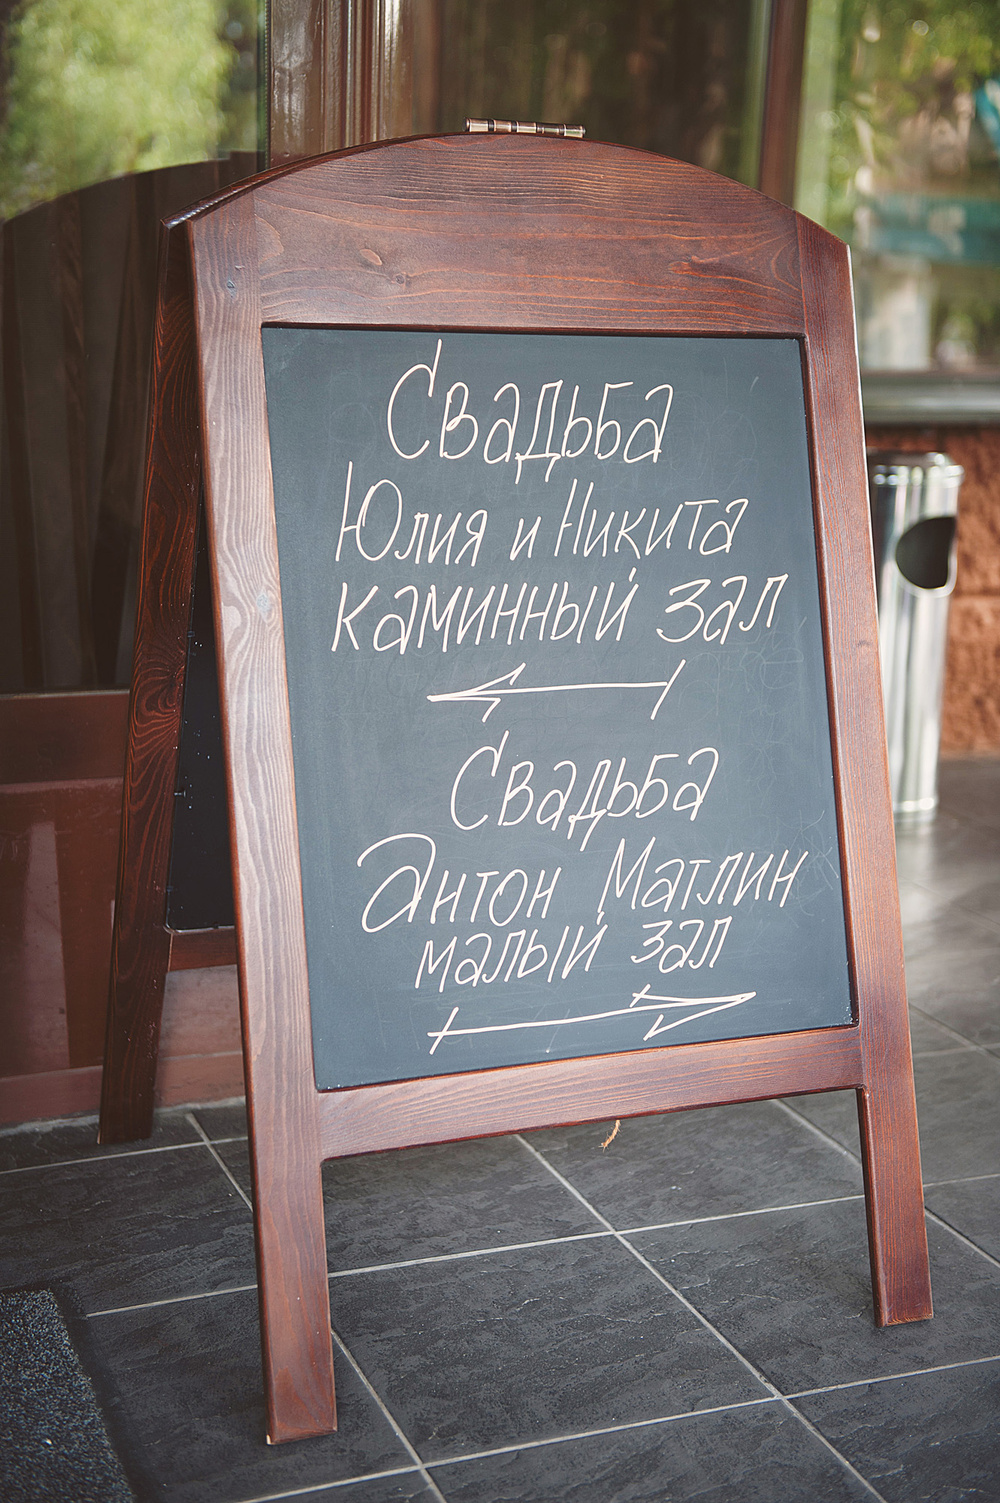 Свадьба
Юлия и Никита
каминный зал
Свадьба
Антон Матлин
малый зал